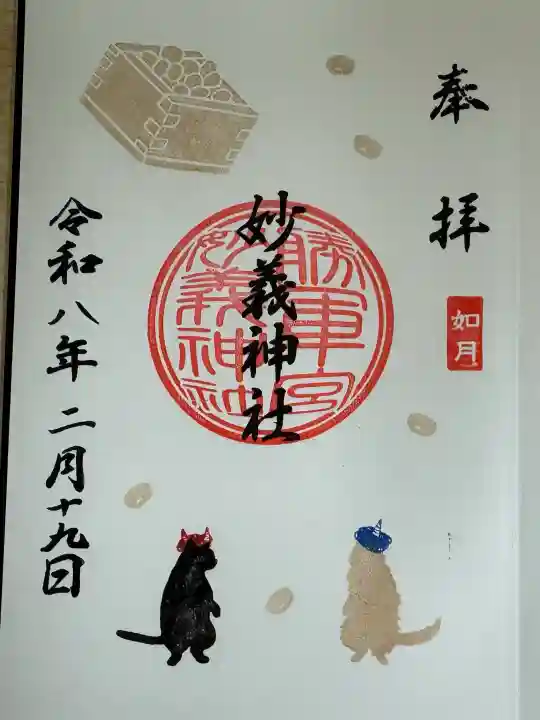 奉拝
如月
妙義神社
勝軍宮
妙義神社
令和八年二月十九日